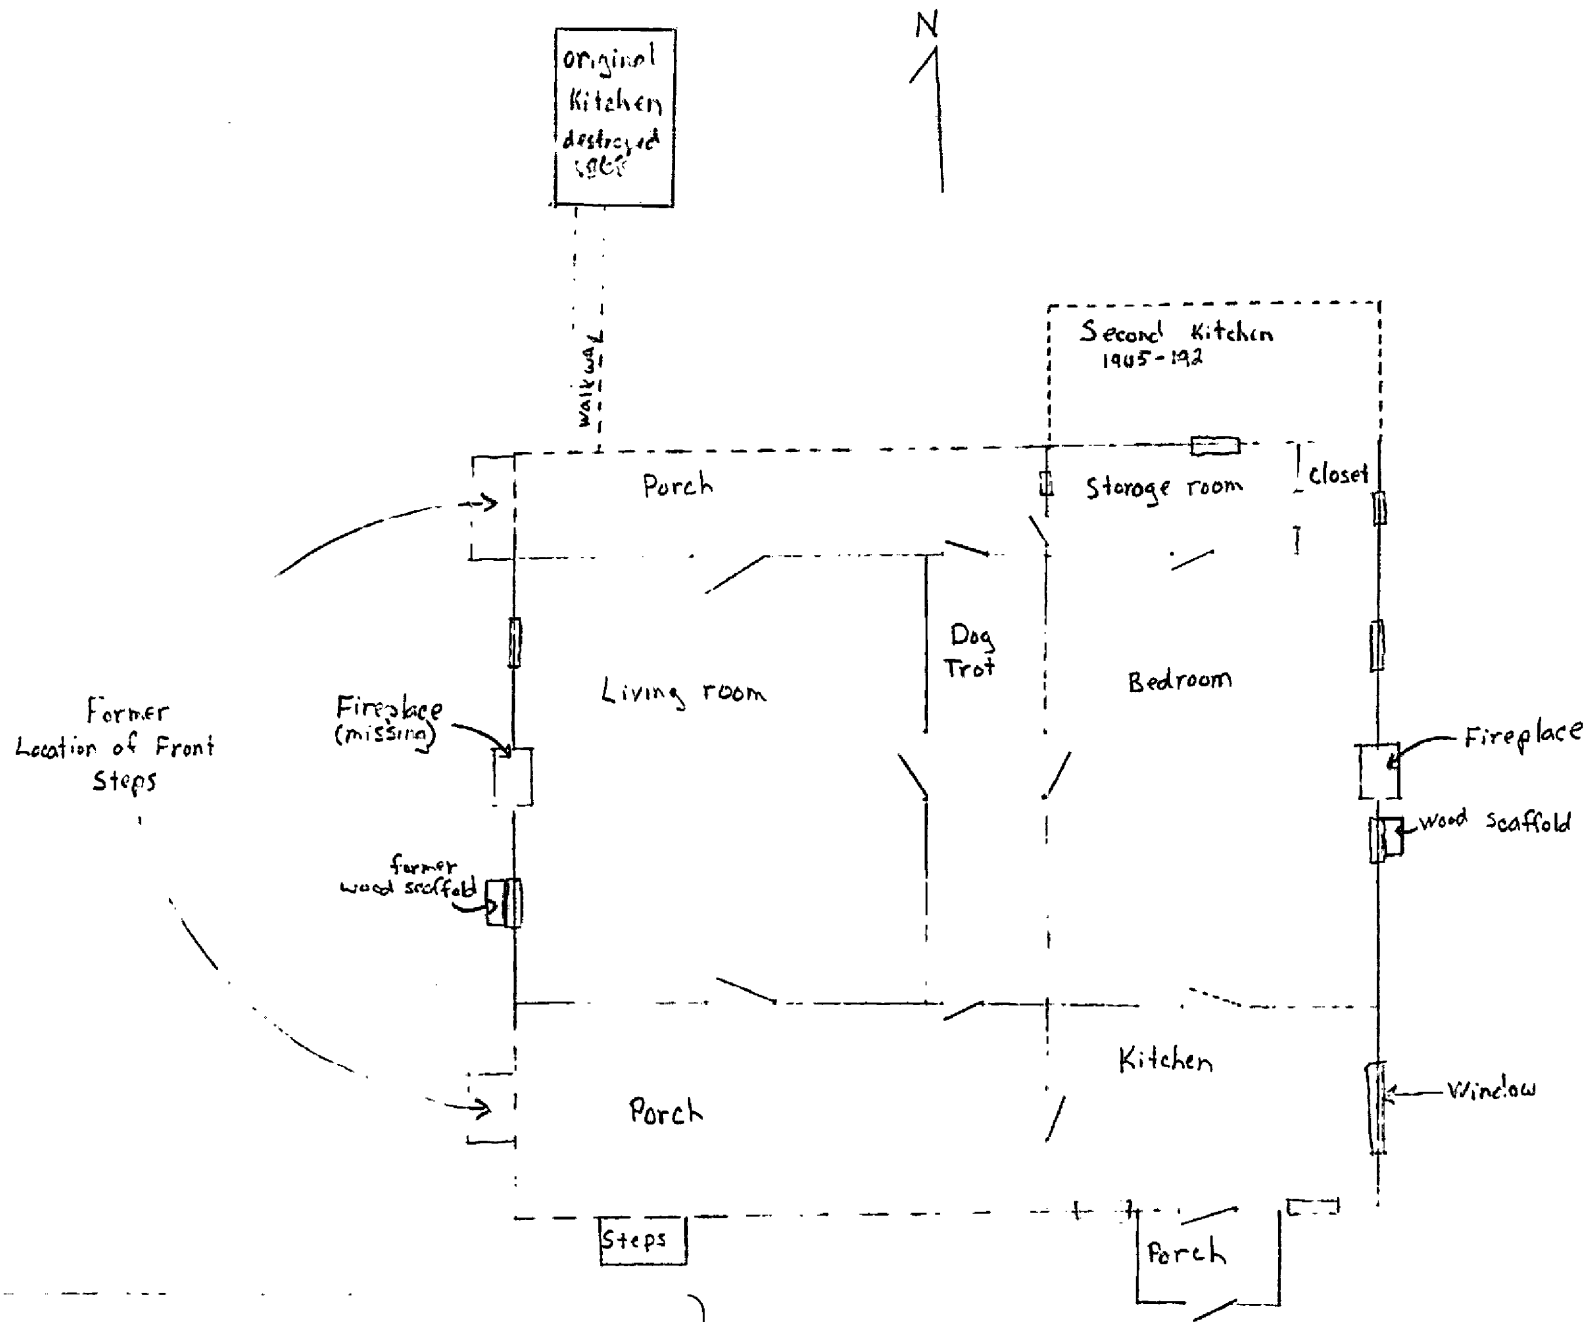 N
original
Kitchen
destroyed
walkway
Second Kitchen
1905-192
Porch
Storage room
Closet
Dog
Trot
Living room
Bedroom
Former
Location of Front
Steps
Fireplace
(missing)
Fireplace
Wood Scaffold
former
wood scaffold
Kitchen
Window
Porch
Steps
Porch